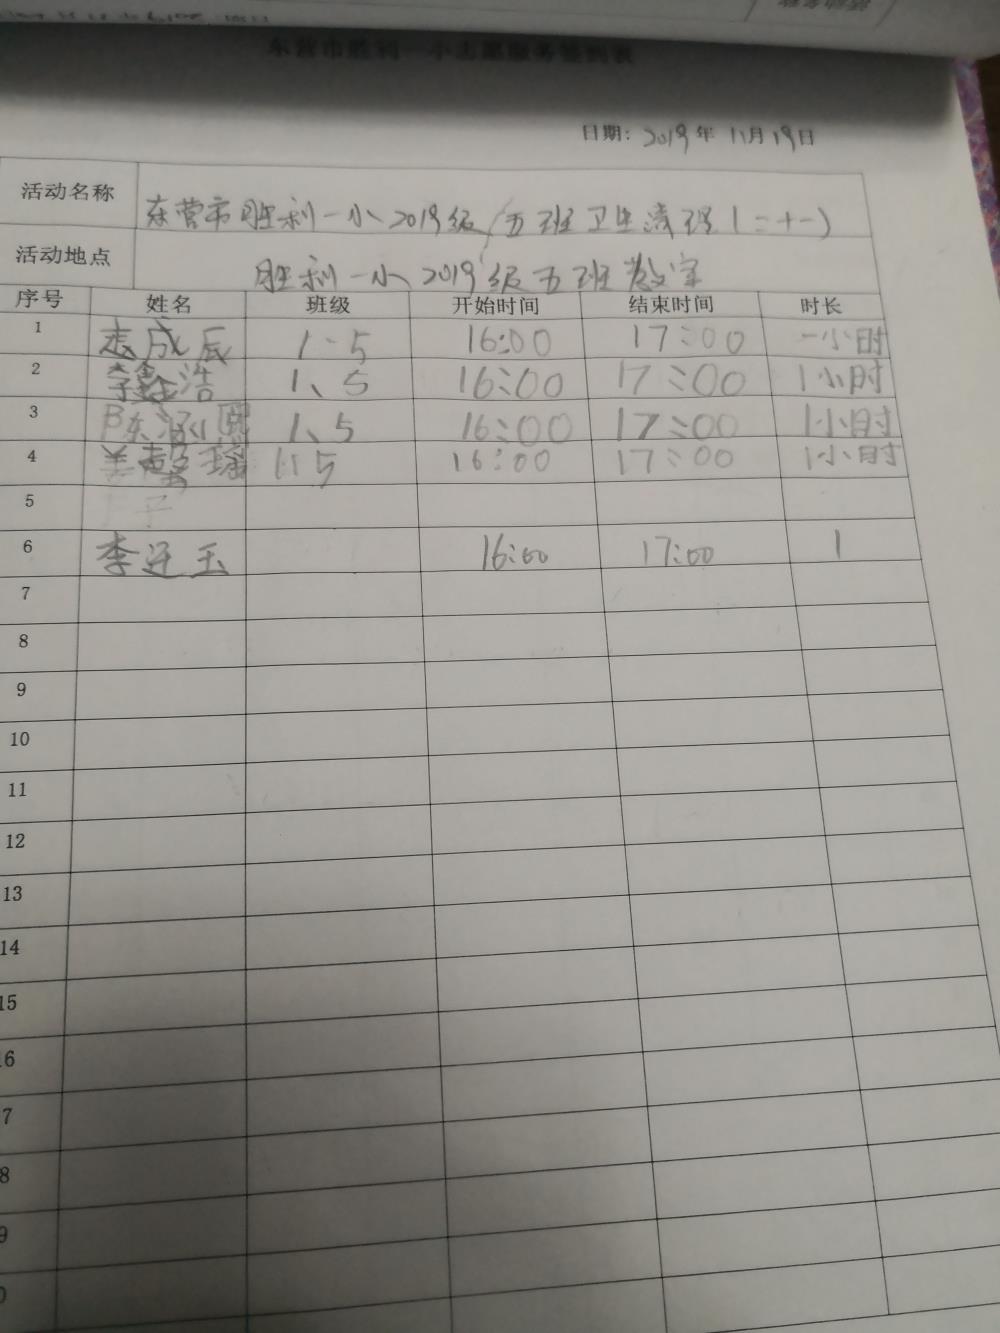 东营市胜利一小志愿服务签到表
日期：2019年11月19日
活动名称 东营市胜利一小2019级五班卫生清理（二十一）
活动地点 胜利一小2019级五班教室
序号 姓名 班级 开始时间 结束时间 时长
1 成辰 1·5 16:00 17:00 一小时
2 李鑫浩 1、5 16:00 17:00 1小时
3 陈涵熙 1、5 16:00 17:00 1小时
4 瑶 1:5 16:00 17:00 1小时
5 子
6 李迂玉 16:00 17:00 1
7
8
9
10
11
12
13
14
15
6
7
8
9
0